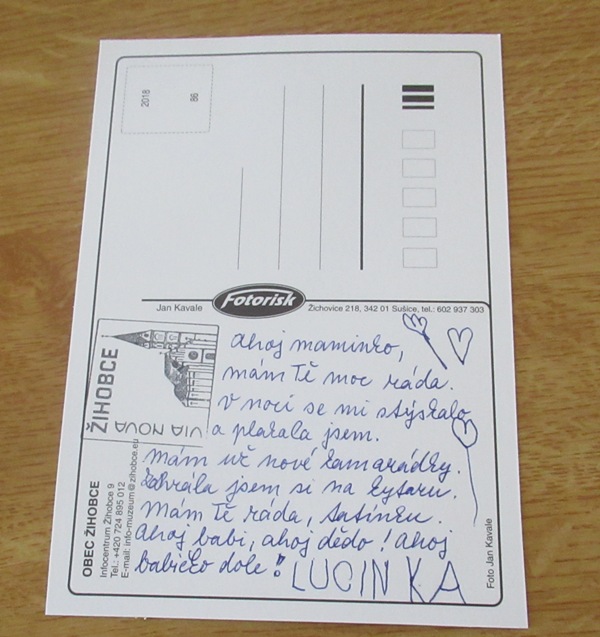 2018
86
Jan Kavale
Fotorisk
Žichovice 218, 342 01 Sušice, tel.: 602 937 303
ŽIHOBCE
VIA NOVA
OBEC ŽIHOBCE
Infocentrum Žihobce 9
Tel.: +420 724 895 012
E-mail: info-muzeum@zihobce.eu
Ahoj maminko,
mám Tě moc ráda.
V noci se mi stýskalo
a plakala jsem.
Mám už nové kamarádky.
Zahrála jsem si na kytaru.
Mám Tě ráda, tatínku.
Ahoj babi, ahoj dědo! Ahoj
babičko dole!
LUCINKA
Foto Jan Kavale